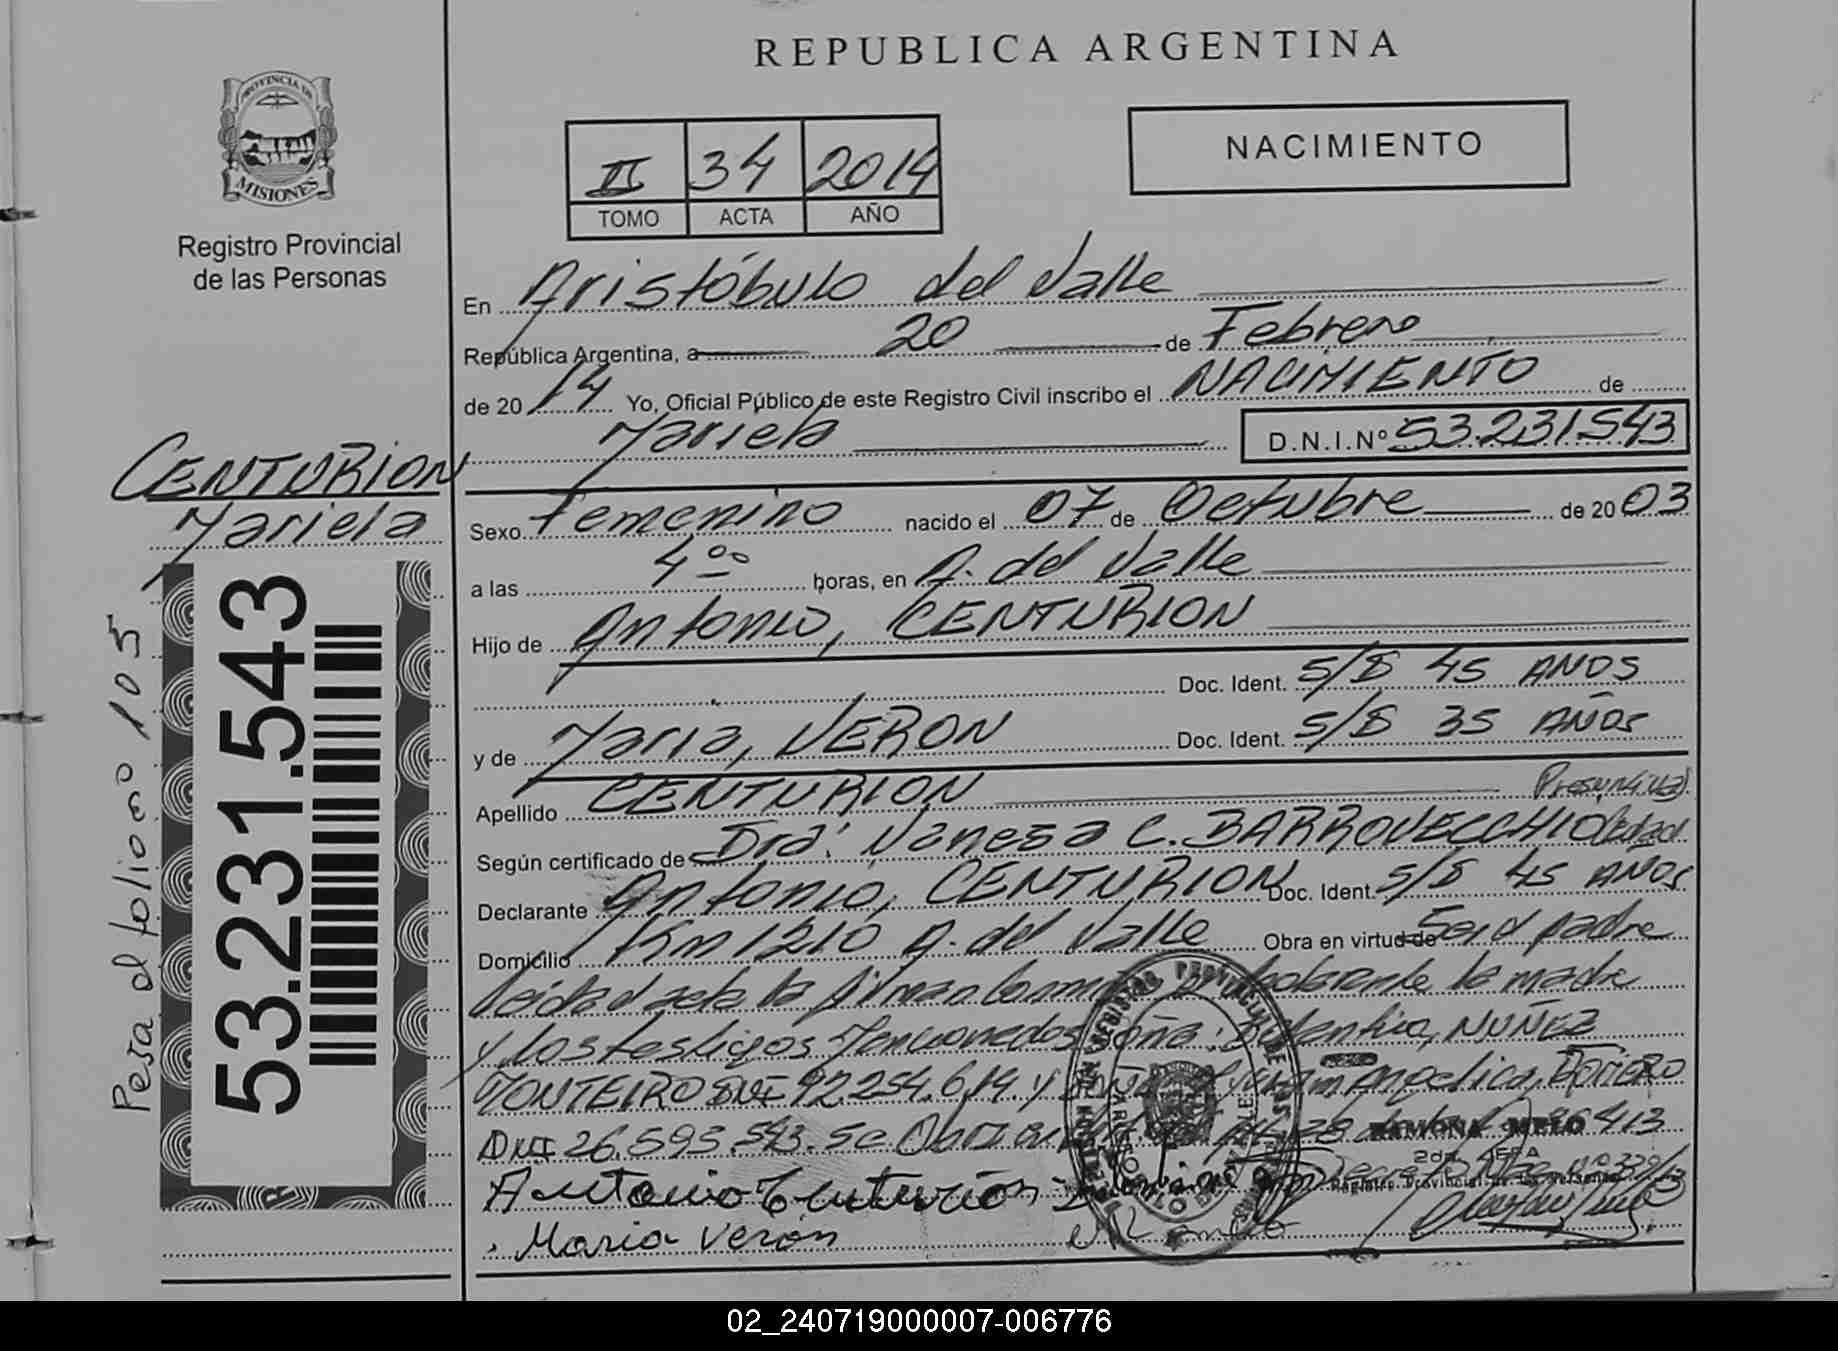 REPUBLICA ARGENTINA
PROVINCIA DE
MISIONES
Registro Provincial
de las Personas
II 34 2014
TOMO ACTA AÑO
NACIMIENTO
En Aristóbulo del Valle
República Argentina, a 20 de Febrero
de 2014 Yo, Oficial Público de este Registro Civil inscribo el NACIMIENTO de
Mariela D.N.I.Nº 53.231.543
CENTURION
Mariela
53.231.543
Pasa al folio nº 105
Sexo Femenino nacido el 07 de Octubre de 2003
a las 4ºº horas, en A. del Valle
Hijo de Antonio, CENTURION
Doc. Ident. S/8 45 AÑOS
y de Maria, VERON Doc. Ident. S/8 35 AÑOS
Apellido CENTURION Presuntiva
Según certificado de Dra: Vanesa C. BARROVECCHIO edad
Declarante Antonio, CENTURION Doc. Ident. S/8 45 AÑOS
Domicilio Km 1210 A. del Valle Obra en virtud de Ser el padre
Leida el acta la firman la madre
y los testigos NUÑEZ
MONTEIRO DNI 92.254.614 y Angelica,
DNI 26.593.543. Se 413
RAMONA MELO
2da. JEFA
Registro Provincial de las Personas
Antonio Centurion
Maria Verón
02_240719000007-006776